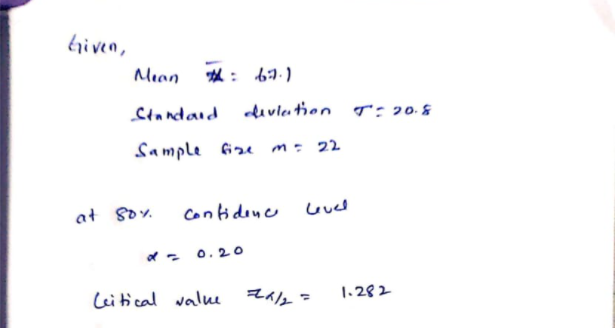 Given,
Mean x̄ : 67.1
Standard deviation σ = 20.8
Sample size n = 22
at 80% confidence level
α = 0.20
Critical value zα/2 = 1.282